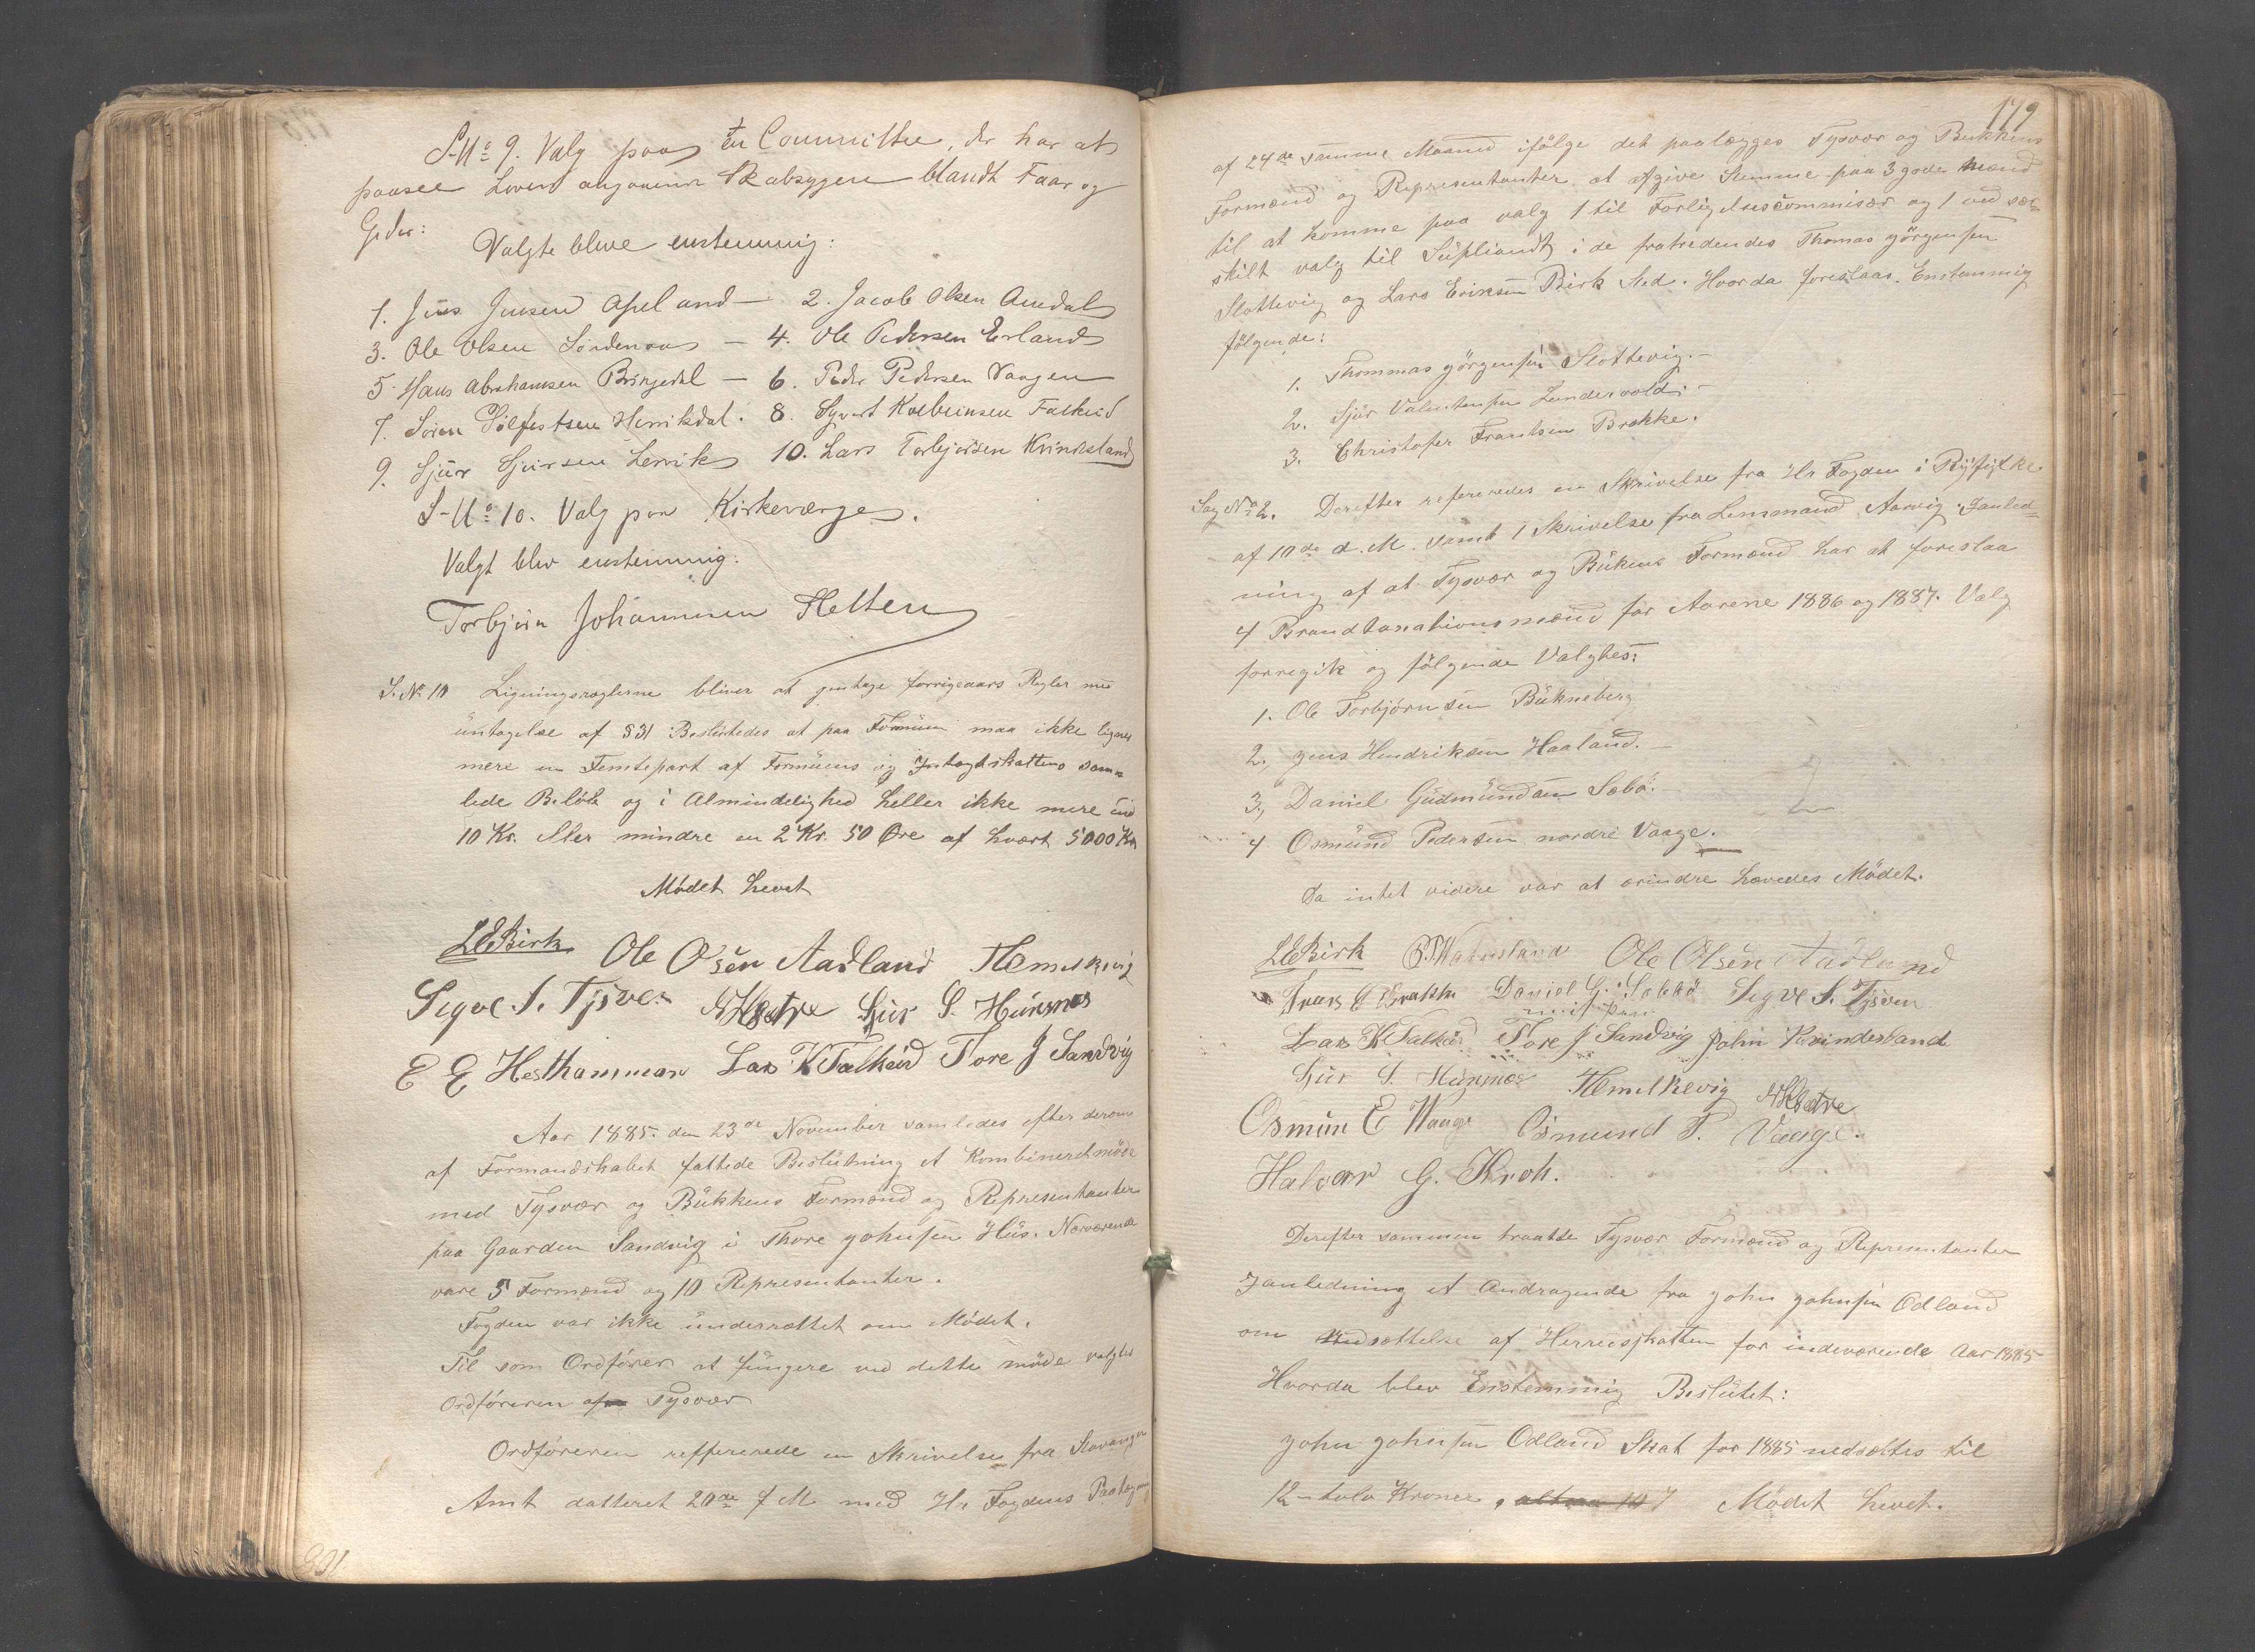 S-No 9. Valg paa en Committee, der har at
paasee Loven angaaende Skabsygen blandt Faar og
Geder:
Valgte bleve enstemmig:
1. Jens Jensen Apeland — 2. Jacob Olsen Amdal
3. Ole Olsen Søndenaa — 4. Ole Pedersen Erland
5. Hans Abrahamsen Bringedal — 6. Peder Pedersen Vaagen
7. Sören Sölfestsen Henrikdal. 8. Syvert Kolbeinsen Falkeid
9. Sjur Sjursen Lervik 10. Lars Torbjörsen Kvindesland
S-No 10. Valg paa Kirkeværge.
Valgt blev enstemmig:
Torbjörn Johannesen Hetten
S. No 10 Ligningsreglerne bliver at gentage forrigeaars Regler med
üntagelse af § 31 Beslütedes at paa Formüen maa ikke lignes
mere en Femtepart af Formüens og Intægtskattens sam-
lede Belöb og i Almindelighed heller ikke mere end
10 Kr. eller mindre en 2 Kr. 50 Øre af hvert 5000 Kr
Mödet hevet
LEBirk Ole Olsen Aadland HEmelkevig
Sigve S. Tysver Sjur S. Hünnes
E E Hesthammer Lars K Falkeid Tore J Sandvig
Aar 1885. den 23de November samledes efter derom
af Formandskabet fattede Beslütning et Kombineretmöde
med Tysvær og Bükkens Formænd og Representanter
paa Gaarden Sandvig i Thore Johnsen Hüs. Nærværende
vare 5 Formænd og 10 Representanter.
Fogden var ikke ünderrettet om Mödet.
Til som Ordfören at füngere ved dette möde valgtes
Ordföreren af Tysvær
Ordföreren reffererede en Skrivelse fra Stavanger
Amt datteret 20de f M med Hr Fogdens Paategning
179
af 24de samme Maaned ifölge det paalægges Tysvær og Bukkens
Formænd og Representanter at afgive Stemme paa 3 gode Mænd
til at komme paa valg 1 til Forligelsescommisær og 1 ved sær-
skilt valg til Süpliandt i de fratredendes Thomas Görgensen
Slottevig og Lars Eriksen Birk Sted. Hvorda foreslaas Enstemmig
fölgende:
1. Thommas görgensen Slottevig. —
2. Sjür Valentinsen Lundervold. —
3. Christofer Frantsen Brekke.
Sag No 2. Derefter refereredes en Skrivelse fra Hr Fogden i Ryfylke
af 10de d. M. samt 1 Skrivelse fra Lensmand Aarvig Janled-
ning af at Tysvær og Bükens Formænd har at foreslaa
4 Brandtaxationsmænd for Aarene 1886 og 1887. Valg
forregik og fölgende Valgtes:
1. Ole Torbjörnsen Bükneberg
2., Jens Hendriksen Haaland. —
3., Daniel Güdmündsen Sæbö. —
4 Osmünd Pedersen nordre Vaage.
Da intet videre var at erindre hævedes Mödet.
LEBirk Ole Olsen Aadland
Daniel G. Sæbö Sigve S. Tysver
Lars K Falkeid Tore J Sandvig John Kvindesland
Sjür S. Hünnes HEmelkevig
Osmün E Waage Osmund P. Vaage.
Halvar G. Kroh.
Derefter sammen traatte Tysvær Formænd og Representanter
Janledning et Andragende fra John Johnsen Odland
om Nedsættelse af Herredsskatten for indeværende Aar 1885
Hvorda blev Enstemmig Beslütet:
John Johnsen Odland Skat for 1885 nedsættes til
12 — tolv Kroner, Mödet hevet.